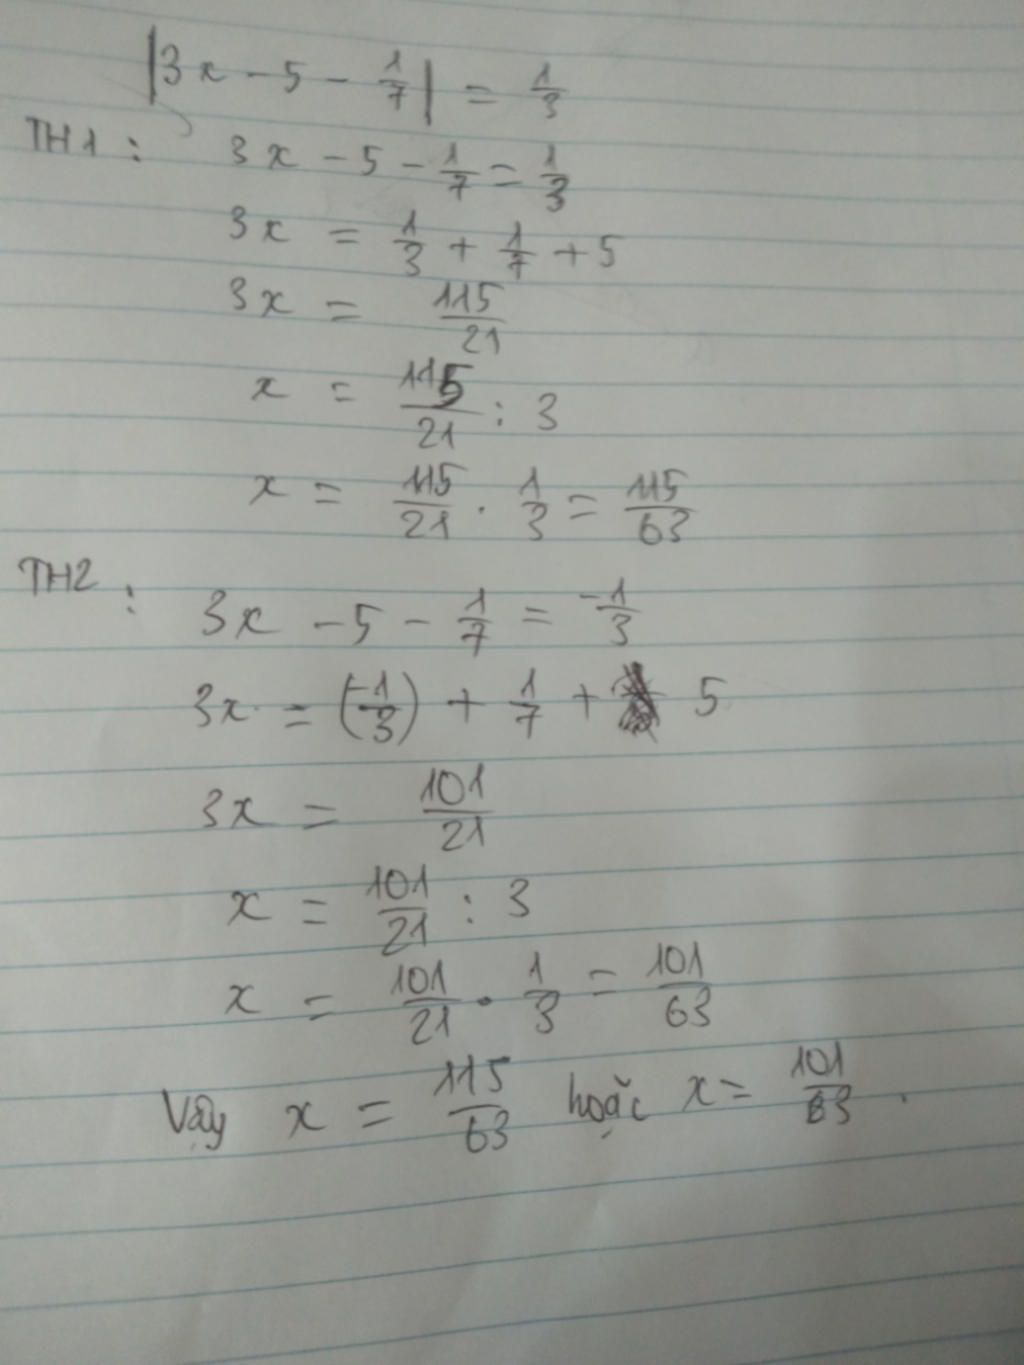 |3x - 5 - 1/7| = 1/3
TH1: 3x - 5 - 1/7 = 1/3
3x = 1/3 + 1/7 + 5
3x = 115/21
x = 115/21 : 3
x = 115/21 . 1/3 = 115/63
TH2: 3x - 5 - 1/7 = -1/3
3x = (-1/3) + 1/7 + 5
3x = 101/21
x = 101/21 : 3
x = 101/21 . 1/3 = 101/63
Vậy x = 115/63 hoặc x = 101/63 .